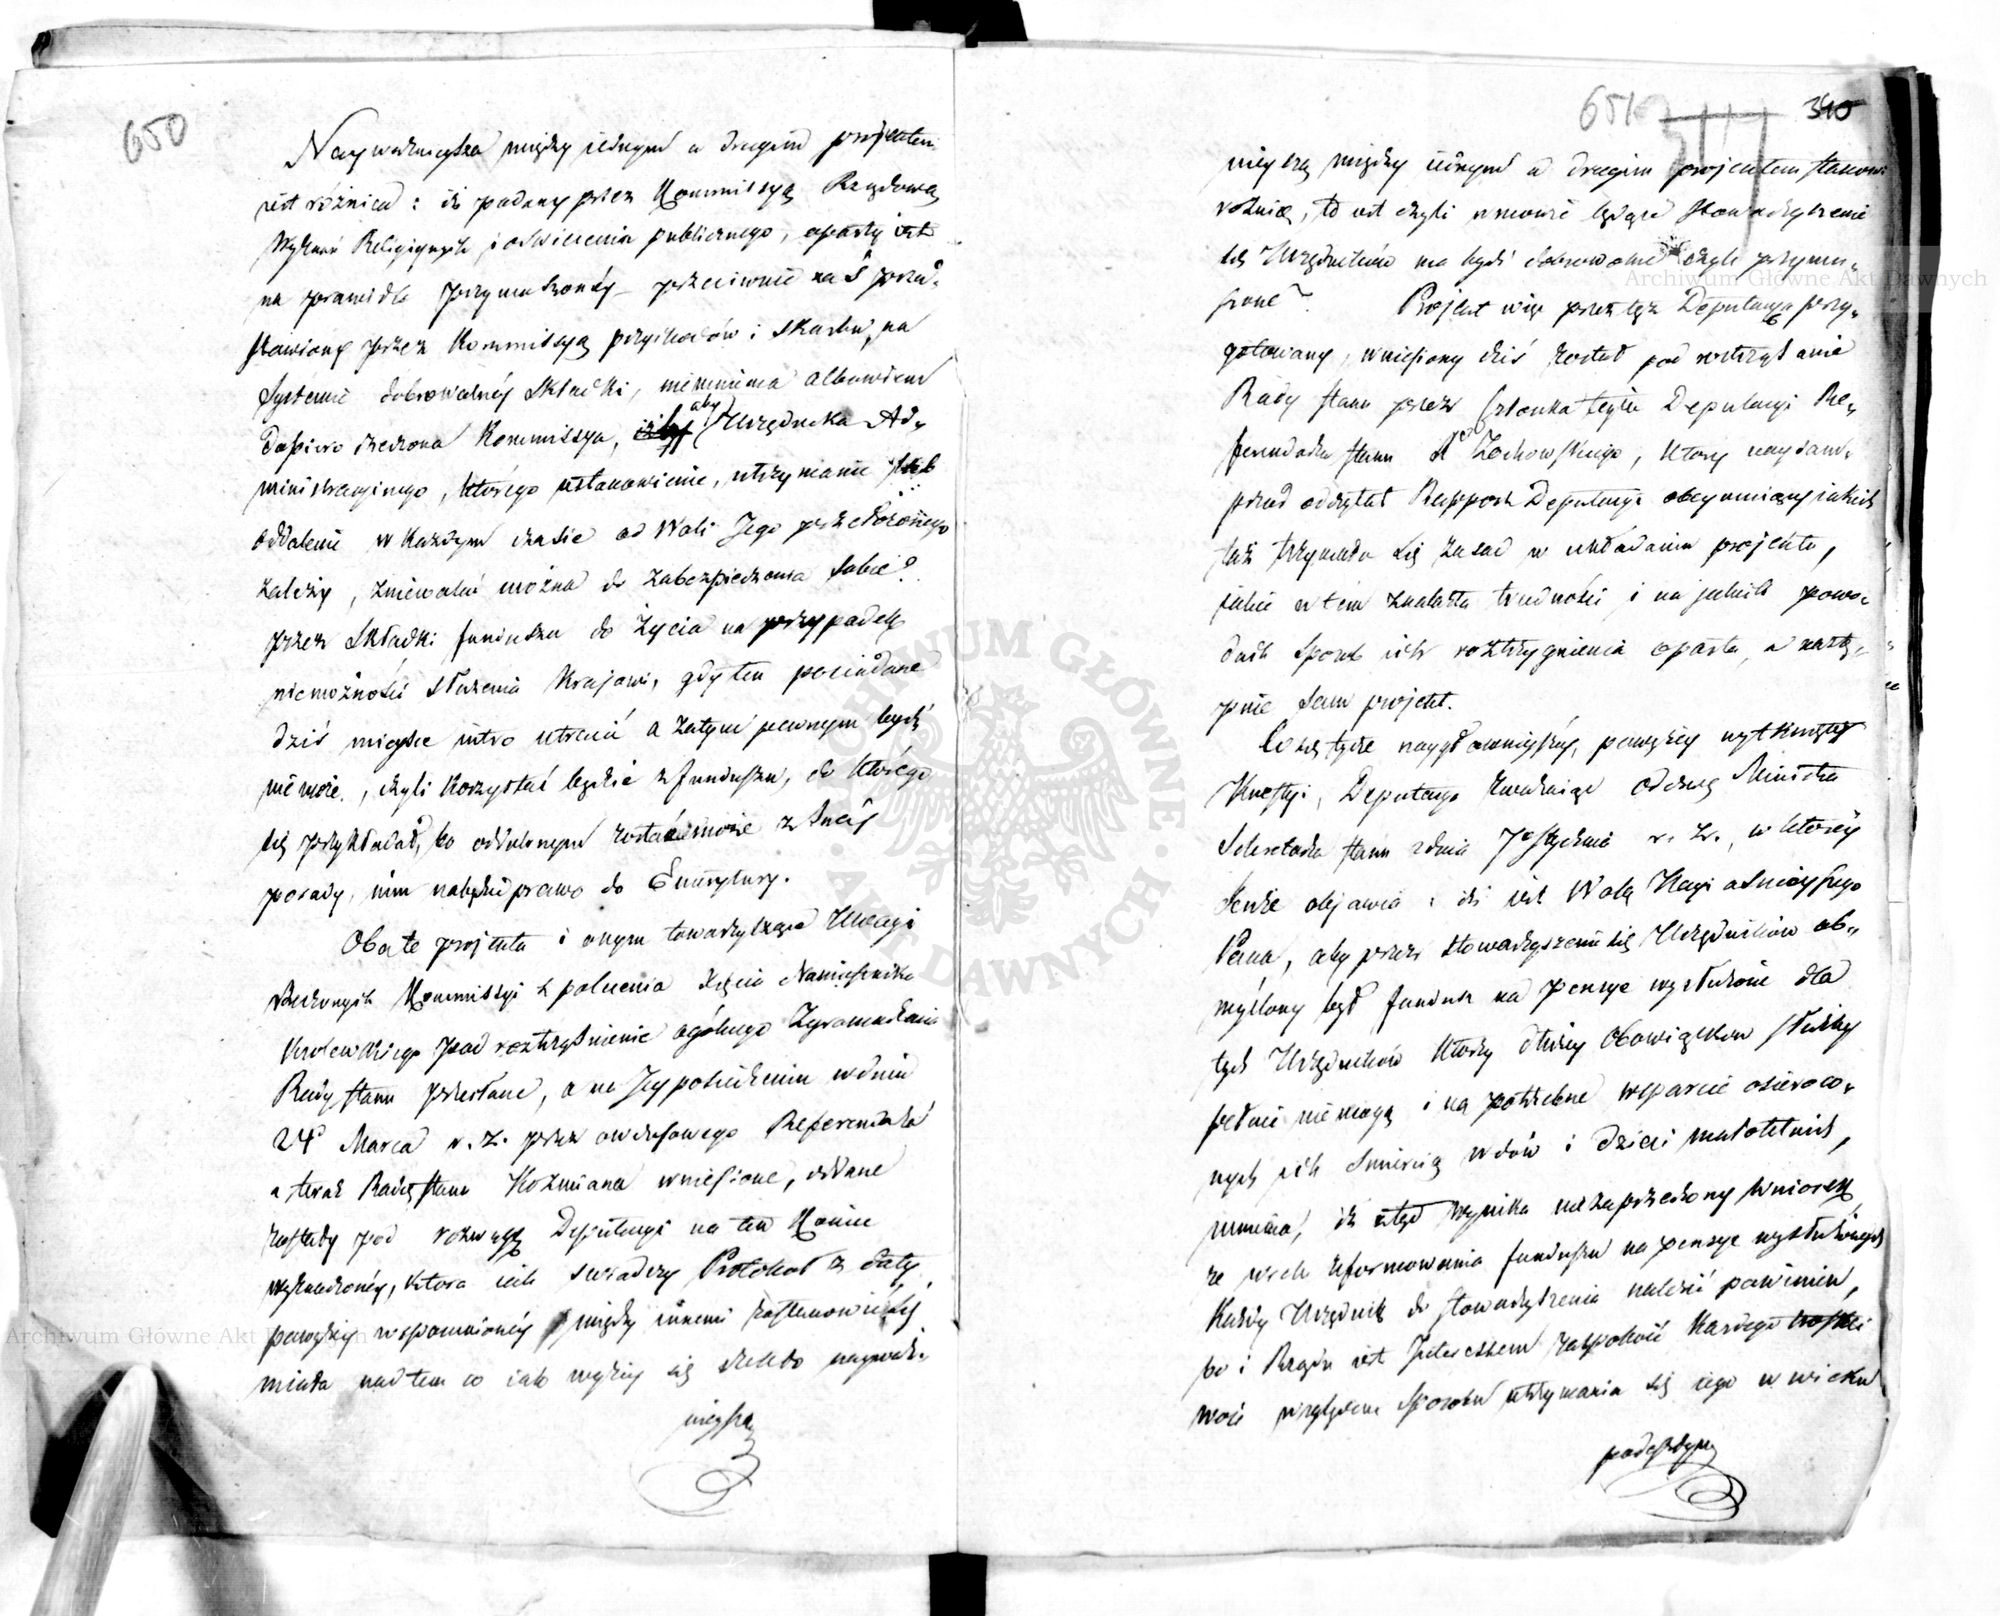 650
Nayważnieysza między iednym a drugim projektem
iest różnica: iż podany przez Kommissyą Rządową
Wyznań Religiynych i oświecenia publicznego, oparty iest
na prawidle przymuszoney - przeciwnie zaś przed-
stawiony przez Kommissyą przychodów i skarbu, na
systemie dobrowolney składki, mniemała albowiem
dopiero rzeczona Kommissya, aby Urzędnika Ad-
ministracyinego, którego ustanowienie, utrzymanie lub
oddalenie w każdym czasie od Woli Jego przełożonego
zależy, zniewalać można do zabezpieczenia sobie
przez składki funduszu do życia na przypadek
niemożności służenia Krajowi, gdy ten posiadane
dziś mieysce iutro utracić a zatym pewnym bydź
nie może, czyli korzystać będzie z funduszu, do którego
się przykładał, bo oddalonym zostać może z swéy
posady, nim nabędzie prawo do Emerytury.
Oba te projekta i onym towarzyszące Uwagi
rzeczonych Kommissyi z polecenia Xięcia Namiestnika
Krolewskiego pod roztrząśnienie ogólnego Zgromadzenia
Rady stanu przesłane, a na Jey posiedzeniu w dniu
24º Marca r. z. przez owczesowego Referendarza
a teraz Radcę stanu Koźmiana wniesione, oddane
zostały pod rozwagę Deputacyi na ten koniec
wyznaczoney, która iak świadczy Protokuł z daty
powyżey wspomnioney między innemi zastanowić się
miała nad tem co iak wyżey się rzekło nayważ-
nieyszą
651
340
nieyszą między iednym a drugim projektem stanowi
różnicę, to iest czyli w mowie będące stowarzyszenie
się Urzędników ma bydź dobrowolne czyli przymu-
szone? Projekt więc przez tęż Deputacyą przy-
gotowany, wniesiony dziś został pod roztrząsanie
Rady stanu przez Członka teyże Deputacyi Re-
ferendarza stanu Żochowskiego, który nayzam-
przód odczytał Rapport Deputacyi obeymuiący iakich
taż trzymała się zasad w układaniu projektu,
iakie w tem znalazła trudności i na jakich powo-
dach sposób ich rozstrzygnienia oparła, a nastę-
pnie sam projekt.
Co się tycze naygłównieyszey, powyżey wytkniętey
Kwestyi, Deputacya zważaiąc odezwę Ministra
Sekretarza stanu z dnia 7º Stycznia r. z., w którey
tenże objawia: iż iest Wolą Nayiaśnieyszego
Pana, aby przez stowarzyszenie się Urzędników ob-
myślony był fundusz na pensye wysłużone dla
tych Urzędników którzy dłużey obowiązków służby
pełnić nie mogą i na potrzebne wsparcie osieroco-
nych ich śmiercią wdów i dzieci małoletnich,
mniema, iż ztąd wynika niezaprzeczony wniosek
że w celu uformowania funduszu na pensye wysłużonych
każdy Urzędnik do stowarzyszenia należeć powinien,
bo i Rządu iest Interessem zaspokoić każdego troskli
wość względem sposobu utrzymania się iego w wieku
podeszłym